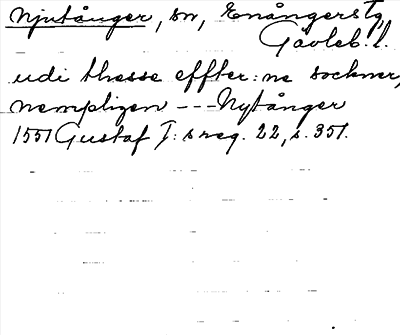 Njutånger, sn, Enångers tg,
Gävleb. l.
udi thesse effter: ne sockner,
nempligen --- Nytånger
1551 Gustaf I: s reg. 22, s. 351.